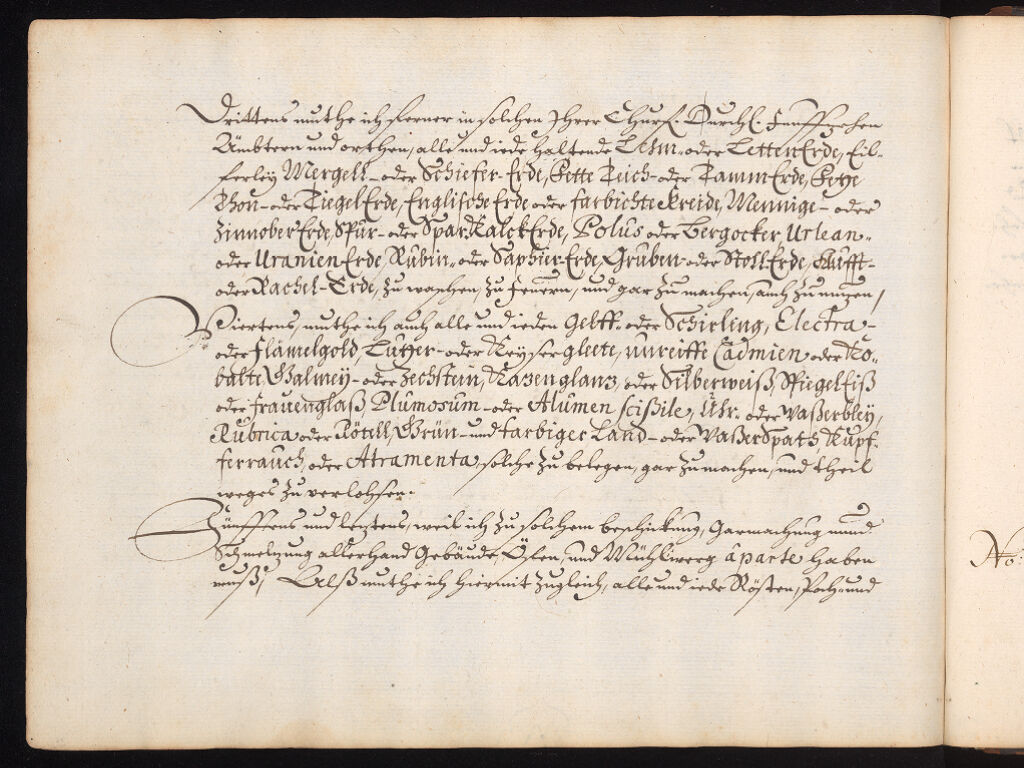 Drittens muthe ich ferner in solchen Ihrer Churf. Durchl. Funffzehen
Ämbtern und orthen, alle und iede haltende Lehm- oder Letten Erde, Eil-
ferleÿ Mergell- oder Schiefer-Erde, Fette Teich- oder Tamm Erde, Fette
Thon- oder Ziegel Erde, Englische Erde oder farbichte kreide, Mennige- oder
Zinnober Erde, Spür- oder Spar Kalck Erde, Bolus oder Bergocker, Urlean-
oder Uranien Erde, Rubin- oder Saphier Erde, Gruben- oder Stoll Erde, Klufft-
oder Rachel-Erde, zu waschen, zu feuern, und gar zu machen, auch zu nuzen /
Viertens, muthe ich auch alle und ieden Gelfft- oder Schirling, Electra-
oder Flämelgold, Lutter- oder Keÿser gleete, unreiffe Cadmien oder Ko-
balte, Galmeÿ- oder Zechstein, Kazenglanz, oder Silberweiß, Spiegelfiß
oder Frauenglaß, Plumosum- oder Alumen scißile, Uhr- oder Waßerbleÿ,
Rubrica oder Rötell, Grün- und farbiger Land- oder Waßer Spats, Kupf-
ferrauch, oder Atramenta, solche zu belegen, gar zu machen, und theil
weges zu verlohser.
Fünfftens und leztens, weil ich zu solchem beschickung, Garmachung unnd
Schmelzung allerhand Gebäude, Öfen, und Mühlwerg àparte haben
muß, Alß muthe ich hiermit zugleich, alle und iede Rösten, Poch- und
No: